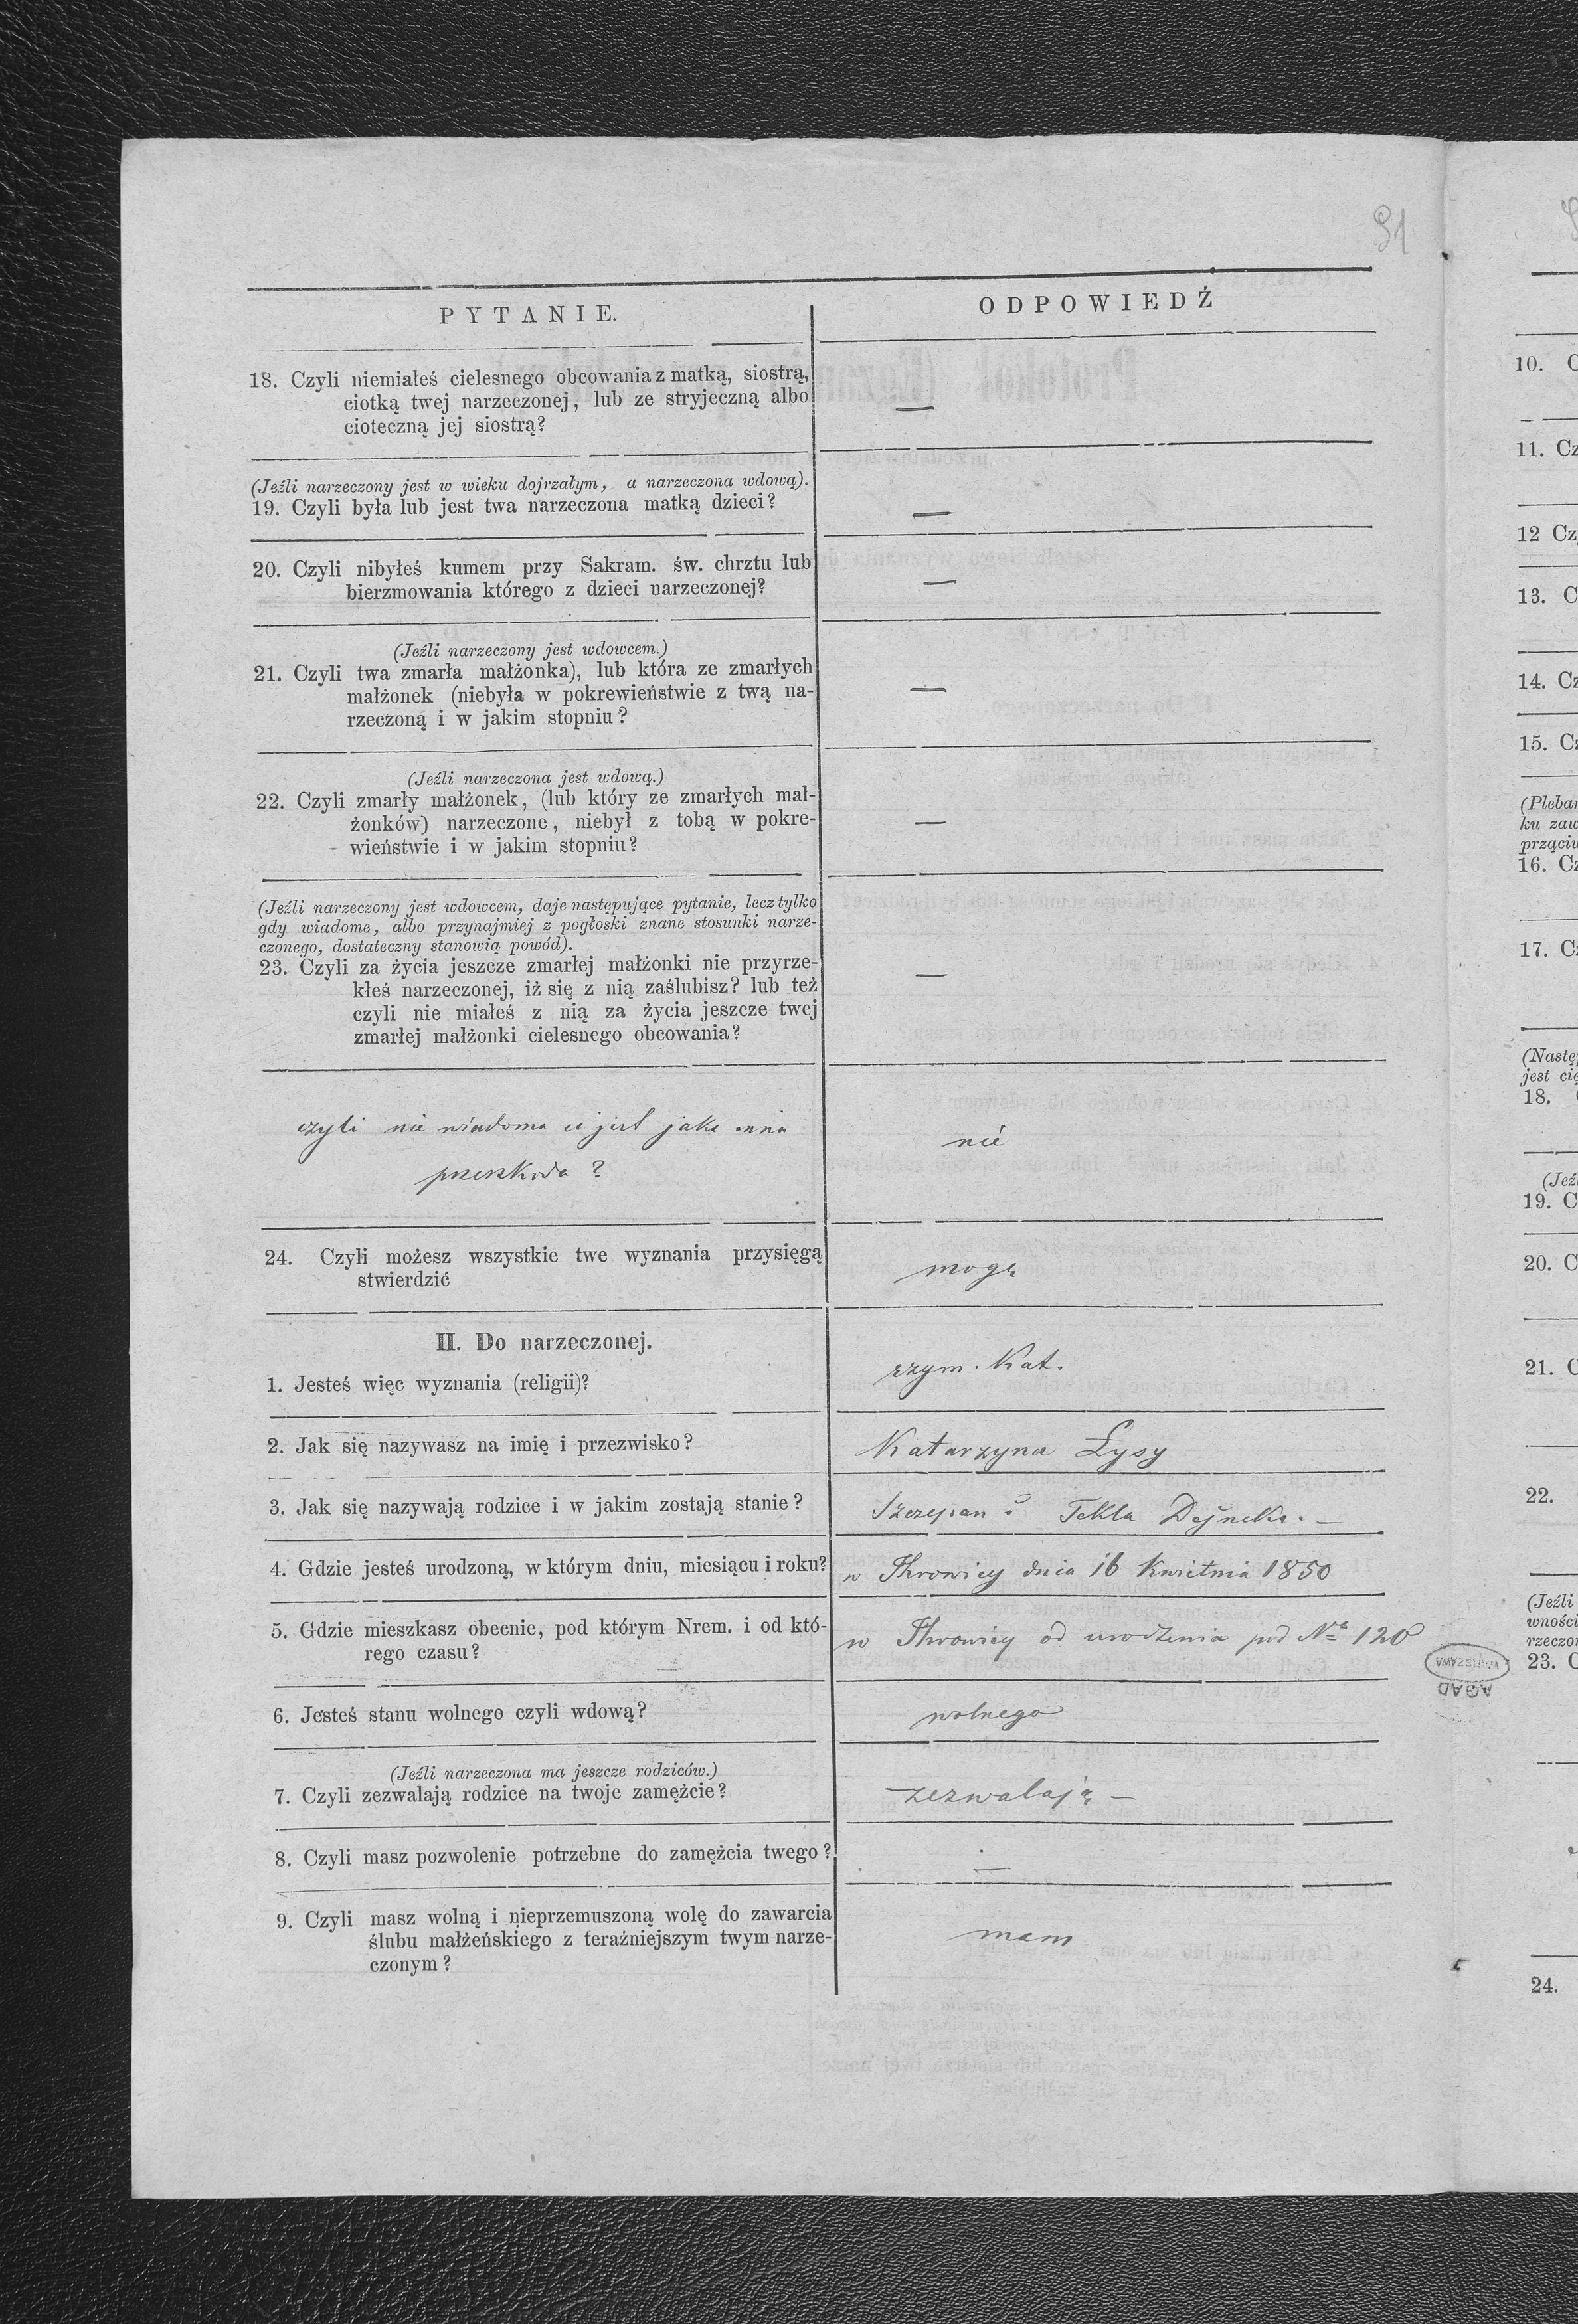 91
PYTANIE.
ODPOWIEDŹ
18. Czyli niemiałeś cielesnego obcowania z matką, siostrą,
ciotką twej narzeczonej, lub ze stryjeczną albo
cioteczną jej siostrą?
—
(Jeźli narzeczony jest w wieku dojrzałym, a narzeczona wdową).
19. Czyli była lub jest twa narzeczona matką dzieci?
—
20. Czyli nibyłeś kumem przy Sakram. św. chrztu lub
bierzmowania którego z dzieci narzeczonej?
—
(Jeźli narzeczony jest wdowcem.)
21. Czyli twa zmarła małżonka), lub która ze zmarłych
małżonek (niebyła w pokrewieństwie z twą na-
rzeczoną i w jakim stopniu?
—
(Jeźli narzeczona jest wdową.)
22. Czyli zmarły małżonek, (lub który ze zmarłych mał-
żonków) narzeczone, niebył z tobą w pokre-
wieństwie i w jakim stopniu?
—
(Jeźli narzeczony jest wdowcem, daje następujące pytanie, lecz tylko
gdy wiadome, albo przynajmiej z pogłoski znane stosunki narze-
czonego, dostateczny stanowią powód).
23. Czyli za życia jeszcze zmarłej małżonki nie przyrze-
kłeś narzeczonej, iż się z nią zaślubisz? lub też
czyli nie miałeś z nią za życia jeszcze twej
zmarłej małżonki cielesnego obcowania?
—
czyli nie wiadoma ci jest jaka inna
przeszkoda?
nie
24. Czyli możesz wszystkie twe wyznania przysięgą
stwierdzić
mogę
II. Do narzeczonej.
1. Jesteś więc wyznania (religii)?
rzym. Kat.
2. Jak się nazywasz na imię i przezwisko?
Katarzyna Łysy
3. Jak się nazywają rodzice i w jakim zostają stanie?
Szczepan i Tekla Dejneka. —
4. Gdzie jesteś urodzoną, w którym dniu, miesiącu i roku?
w dnia 16 Kwietnia 1850
5. Gdzie mieszkasz obecnie, pod którym Nrem. i od któ-
rego czasu?
w od urodzenia pod Nro 120
6. Jesteś stanu wolnego czyli wdową?
wolnego
(Jeźli narzeczona ma jeszcze rodziców.)
7. Czyli zezwalają rodzice na twoje zamężcie?
zezwalają —
8. Czyli masz pozwolenie potrzebne do zamężcia twego?
—
9. Czyli masz wolną i nieprzemuszoną wolę do zawarcia
ślubu małżeńskiego z teraźniejszym twym narze-
czonym?
mam
WARSZAWA
AGAD
10. C
11. Cz
12 Cz
13. C
14. Cz
15. Cz
(Pleban
ku zaw
prząciw
16. Cz
17. Cz
(Nastę
jest cię
18.
(Jeź
19. C
20. C
21. C
22.
(Jeźli
wności
rzeczon
23. C
24.